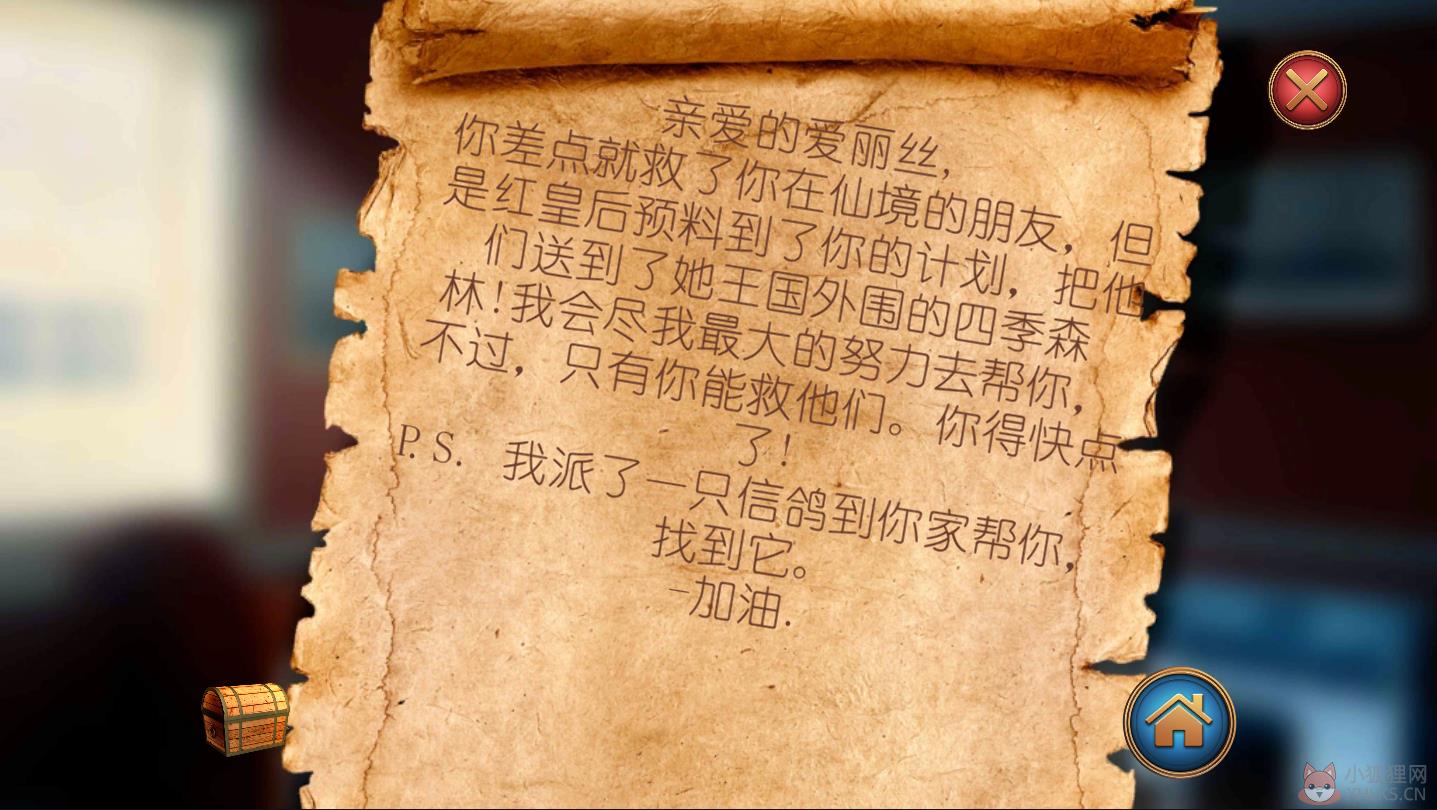 亲爱的爱丽丝,
你差点就救了你在仙境的朋友，但
是红皇后预料到了你的计划，把他
们送到了她王国外围的四季森
林!我会尽我最大的努力去帮你,
不过，只有你能救他们。你得快点
了!
P.S. 我派了一只信鸽到你家帮你,
找到它。
-加油.
小狐狸网
XHLKS.CN